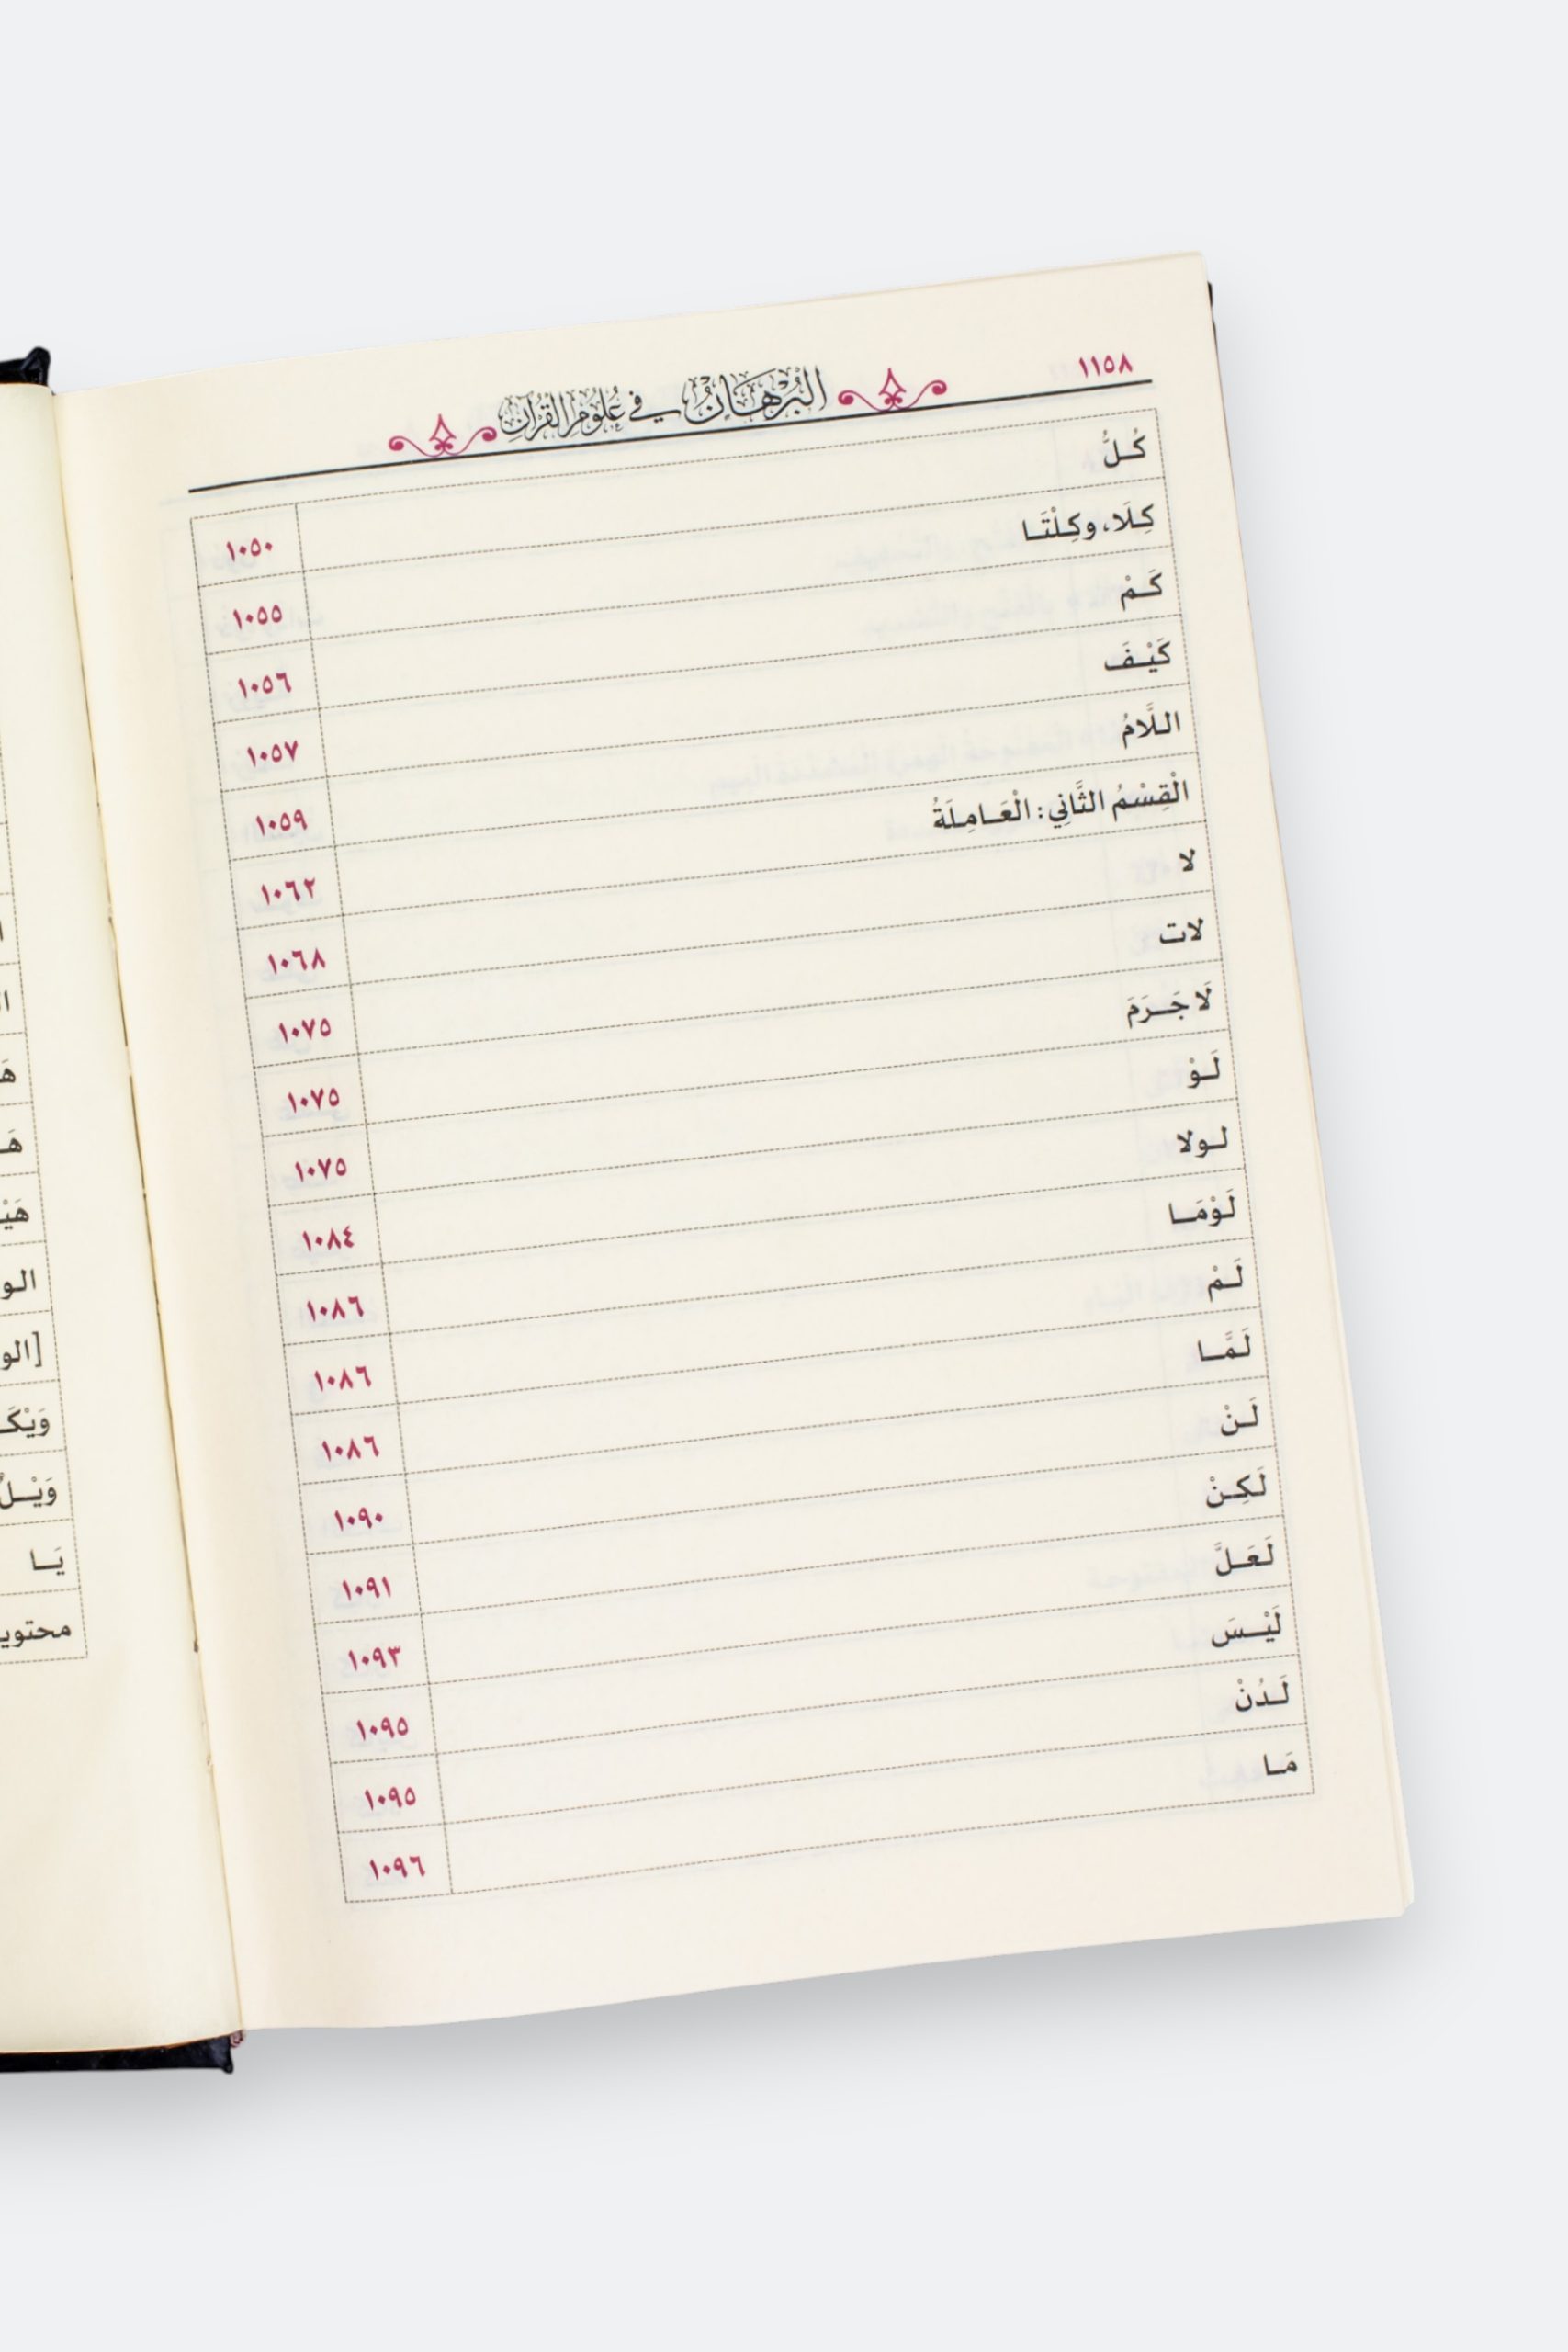 ١١٥٨
البُرْهَانُ في عُلُومِ القُرْآنِ
كُلُّ ١٠٥٠
كِلَا، وكِلْتَا ١٠٥٥
كَمْ ١٠٥٦
كَيْفَ ١٠٥٧
اللَّامُ ١٠٥٩
الْقِسْمُ الثَّانِي: الْعَامِلَةُ ١٠٦٢
لا ١٠٦٨
لات ١٠٧٥
لَا جَرَمَ ١٠٧٥
لَوْ ١٠٧٥
لولا ١٠٨٤
لَوْمَا ١٠٨٦
لَمْ ١٠٨٦
لَمَّا ١٠٨٦
لَنْ ١٠٩٠
لَكِنْ ١٠٩١
لَعَلَّ ١٠٩٣
لَيْسَ ١٠٩٥
لَدُنْ ١٠٩٥
مَا ١٠٩٦
يَا